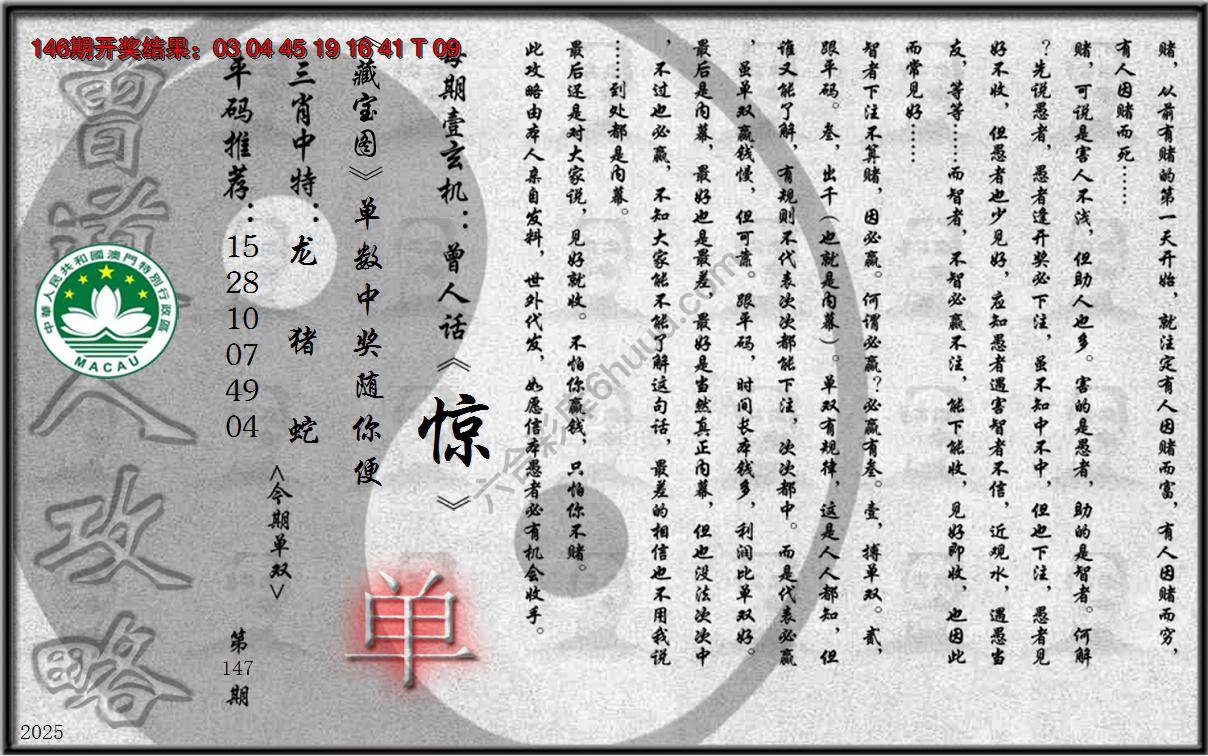 146期开奖结果：03 04 45 19 16 41 T 09
赌，从前有赌的第一天开始，就注定有人因赌而富，有人因赌而穷，
有人因赌而死……
赌，可说是害人不浅，但助人也多。害的是愚者，助的是智者。何解
？先说愚者，愚者逢开奖必下注，虽不知中不中，但也下注，愚者见
好不收，但愚者也少见好，应知愚者遇害智者不信，近观水，遇愚当
友，等等……而智者，不智必赢不注，能下能收，见好即收，也因此
而常见好……
智者下注不算赌，因必赢。何谓必赢？必赢有叁。壹，搏单双。贰，
跟平码。叁，出千（也就是内幕）。单双有规律，这是人人都知，但
谁又能了解，有规则不代表次次都能下注，次次都中。而是代表必赢
，虽单双赢钱慢，但可靠。跟平码，时间长本钱多，利润比单双好。
最后是内幕，最好也是最差，最好是当然真正内幕，但也没法次次中
，不过也必赢，不知大家能不能了解这句话，最差的相信也不用我说
……到处都是内幕。
最后还是对大家说，见好就收。不怕你赢钱，只怕你不赌。
此攻略由本人亲自发料，世外代发，如愿信本愚者必有机会收手。
每期壹玄机：曾人话《惊》
《藏宝图》单数中奖随你便
三肖中特：龙 猪 蛇
<今期单双>
单
平码推荐：15 28 10 07 49 04
第147期
曾道人攻略
中華人民共和國澳門特別行政區
MACAU
2025